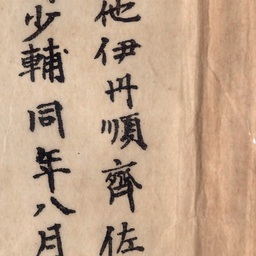 他伊丹順齋佐
少輔同年八月